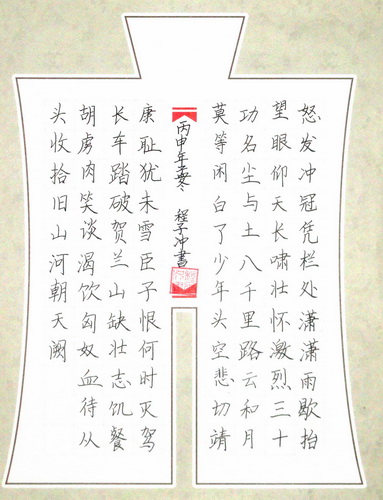 怒发冲冠凭栏处潇潇雨歇抬
望眼仰天长啸壮怀激烈三十
功名尘与土八千里路云和月
莫等闲白了少年头空悲切靖
丙申年孟冬 程子冲書
康耻犹未雪臣子恨何时灭驾
长车踏破贺兰山缺壮志饥餐
胡虏肉笑谈渴饮匈奴血待从
头收拾旧山河朝天阙